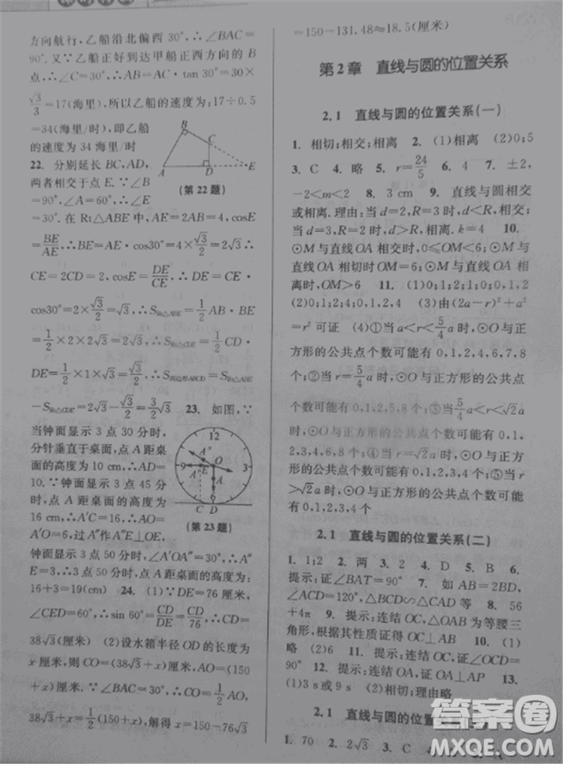 方向航行,乙船沿北偏西
方向航行,∴∠BAC=
90°∵乙船正好在甲船正西方向,∴∠C=
30°∴AB=AC·tan 30°=17√3×
√3/3=17(海里),所以乙船的速度为:17÷0.5
=34(海里/时),即乙船
的速度为34海里/时
22. 分别延长BC,AD,
两者相交于点E.∵∠B
=90°,∠A=60°,∴∠E=
30°.在Rt△ABE中,AE=2AB=4,cosE
=BE/AE,∴BE=AE·cos30°=4×√3/2=2√3.∴
CE=2CD=2,cosE=DE/CE.∴DE=CE·
cos30°=2×√3/2=√3.∴S Rt△ABE=1/2AB·BE
=1/2×2×2√3=2√3,∴S Rt△CDE=1/2CD·
DE=1/2×1×√3=√3/2.∴S四边形ABCD=S Rt△ABE
-S Rt△CDE=2√3-√3/2=3/2√3
(第22题)
23. 如图,∵
当钟面显示3点30分时,
分针垂直于桌面,点A距桌面
的高度为10 cm,∴AD=
10.∵钟面显示3点45分
时,点A距桌面的高度为
16 cm,∴AC=16,∴
A′O=6.过A″作A″E⊥OE,∵
钟面显示3点50分时,∠A′OA″=30°,∴A″E
=3.∴点A距桌面的高度为:16+3=
19(厘米)
(第23题)
24. (1)∵DE=76厘米,
∠CED=60°,∴sin 60°=CD/DE=CD/76,∴CD=
38√3(厘米) (2)设水箱半径OD的长度为
x厘米,则CO=(38√3+x)厘米,AO=(150
+x)厘米,∵∠BAC=30°,∴CO=1/2AO,
38√3+x=1/2(150+x),解得x=150-76√3
=150-131.48≈18.5(厘米)
第2章 直线与圆的位置关系
2.1 直线与圆的位置关系(一)
1. 相切;相交;相离 2. (1)相离 (2)0;5
3. C 4. 略 5. r=24/5 6. 4 7. ±2,
-2<m<2 8. 3 cm 9. 直线与圆相交
或相离.理由:当d=2,R=3时,d<R,相交;
当d=3,R=2时,d>R,相离.k=4 10.
⊙M与直线OA相交时,0≤OM<6;⊙M与
直线OA相切时OM=6;⊙M与直线OA相
离时,OM>6 11. (1)0;1;2;1;0;0
(2)0;2;4;0,1,2,4 (3)由(2a-r)²+a²=
r²可证 (4)①当a<r<5/4a时,⊙O与正方
形的公共点个数可能有0,1,2,4,6,7,8
个;②当r=5/4a时,⊙O与正方形的公共点
个数可能有0,1,2,5,8个;③当5/4a<r<√2a时,
⊙O与正方形的公共点个数可能有0,1,2,
3,4,6,8个;④当r=√2a时,⊙O与正方形的
公共点个数可能有0,1,2,3,4个;⑤当r>
√2a时,⊙O与正方形的公共点个数可能有
0,1,2,3,4个
2.1 直线与圆的位置关系(二)
1. 1;2 2. 两 3. 2 4. D 5. B 6.
提示:证∠BAT=90° 7. 如AB=2BD,
∠ACB=90°,△FBC∽△DAC等 8. 56
9. 16+4π 10. 提示:连结OC,△OAB为等腰三
角形,根据其性质可证OC⊥AB 11. (1)
90° (2)略 12. 提示:连结OC,证OC⊥CD
13. (1)3 s (2)9 s或21 s相切;理由略
2.1 直线与圆的位置关系
1. 70 2. 2√3 3. C
答案圈
MXQE.COM